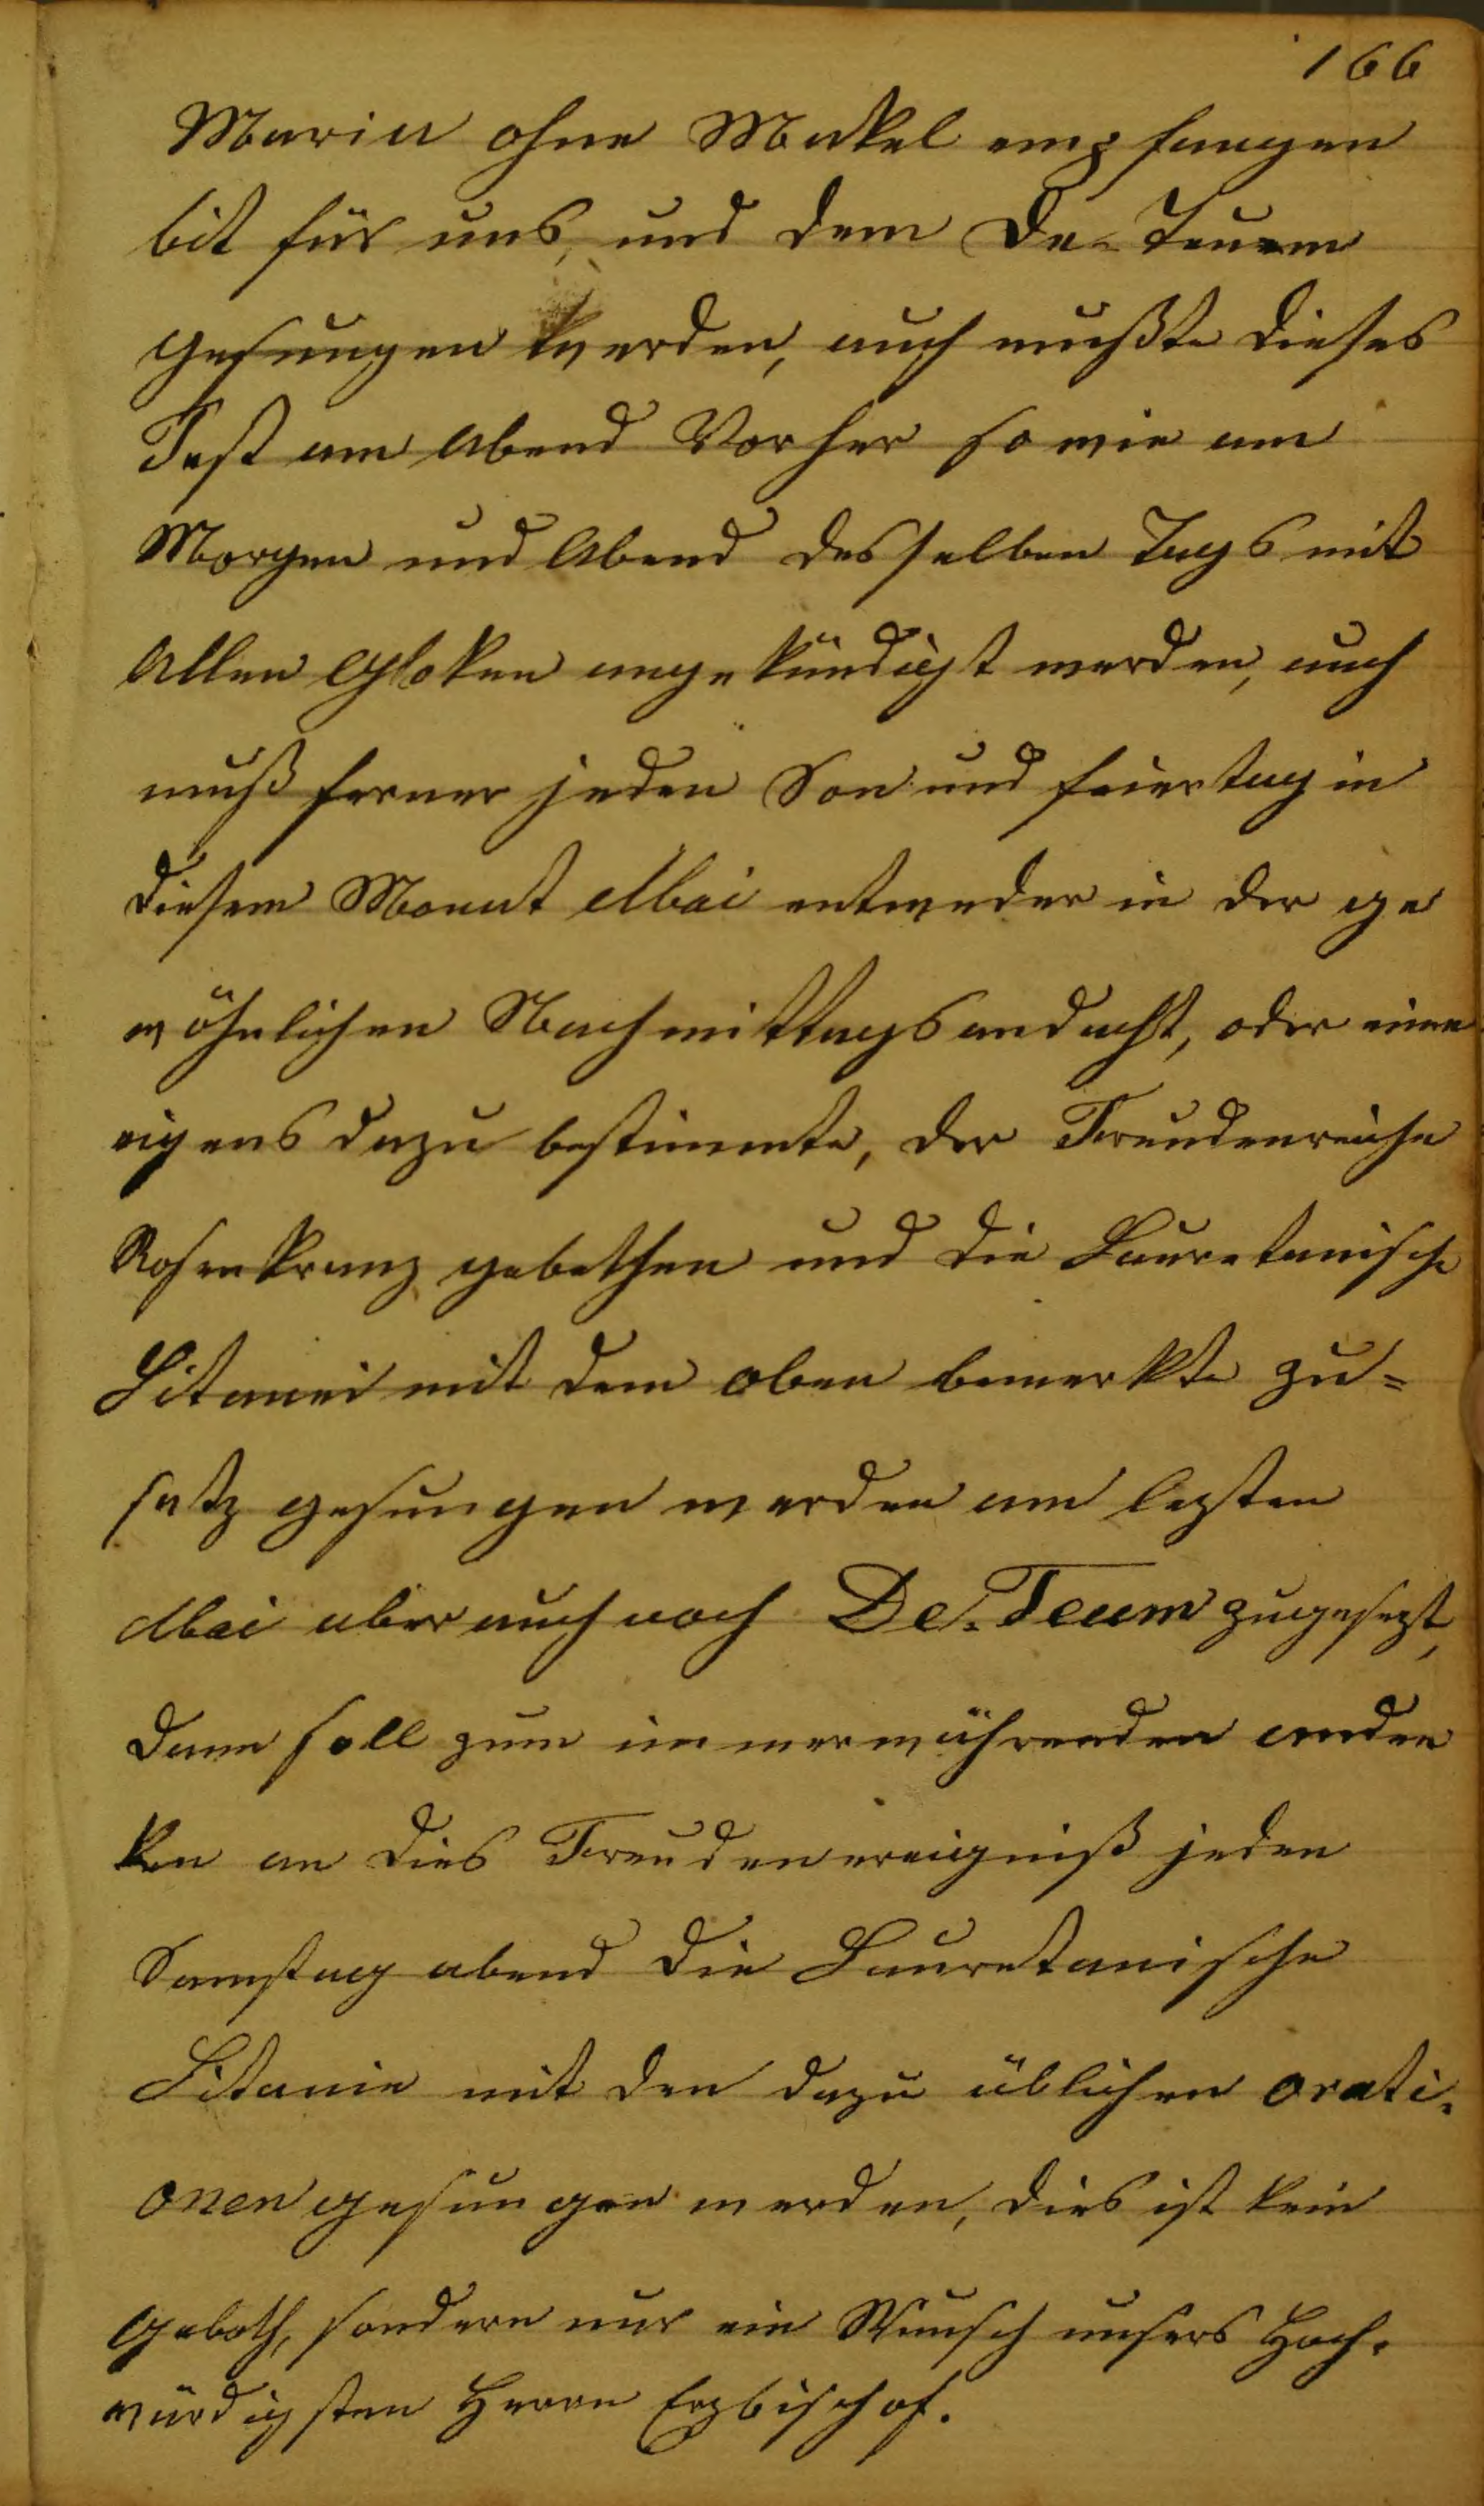 166
Maria ohne Makel empfangen
bit für uns, und dem De-Teuem
gesungen werden, auch mußte dieses
Fest am Abend Vorher so wie am
Morgen und Abend desselben Tags mit
Allen Gloken angekündigt werden, auch
muß ferner jeden Son und feiertag in
diesem Monat Mai entweder in der ge
wöhnlichen Nachmittagsandacht, oder eine
eigens dazu bestimmte, der Freudenreiche
Rosenkranz gebethen und die Lauretanische
Litanei mit dem oben bemerkte zu=
satz gesungen werden am lezten
Mai aber auch noch De. Teum zugesezt,
dann soll zum immerwährenden anden
ken an dies Freudenereigniß jeden
Samstag abend die Lauretanische
Litanie mit den dazu üblichen orati.
onen gesungen werden, dies ist kein
geboth, sondern nur ein Wunsch unsers Hoch.
würdigsten Herrn Erzbischof.